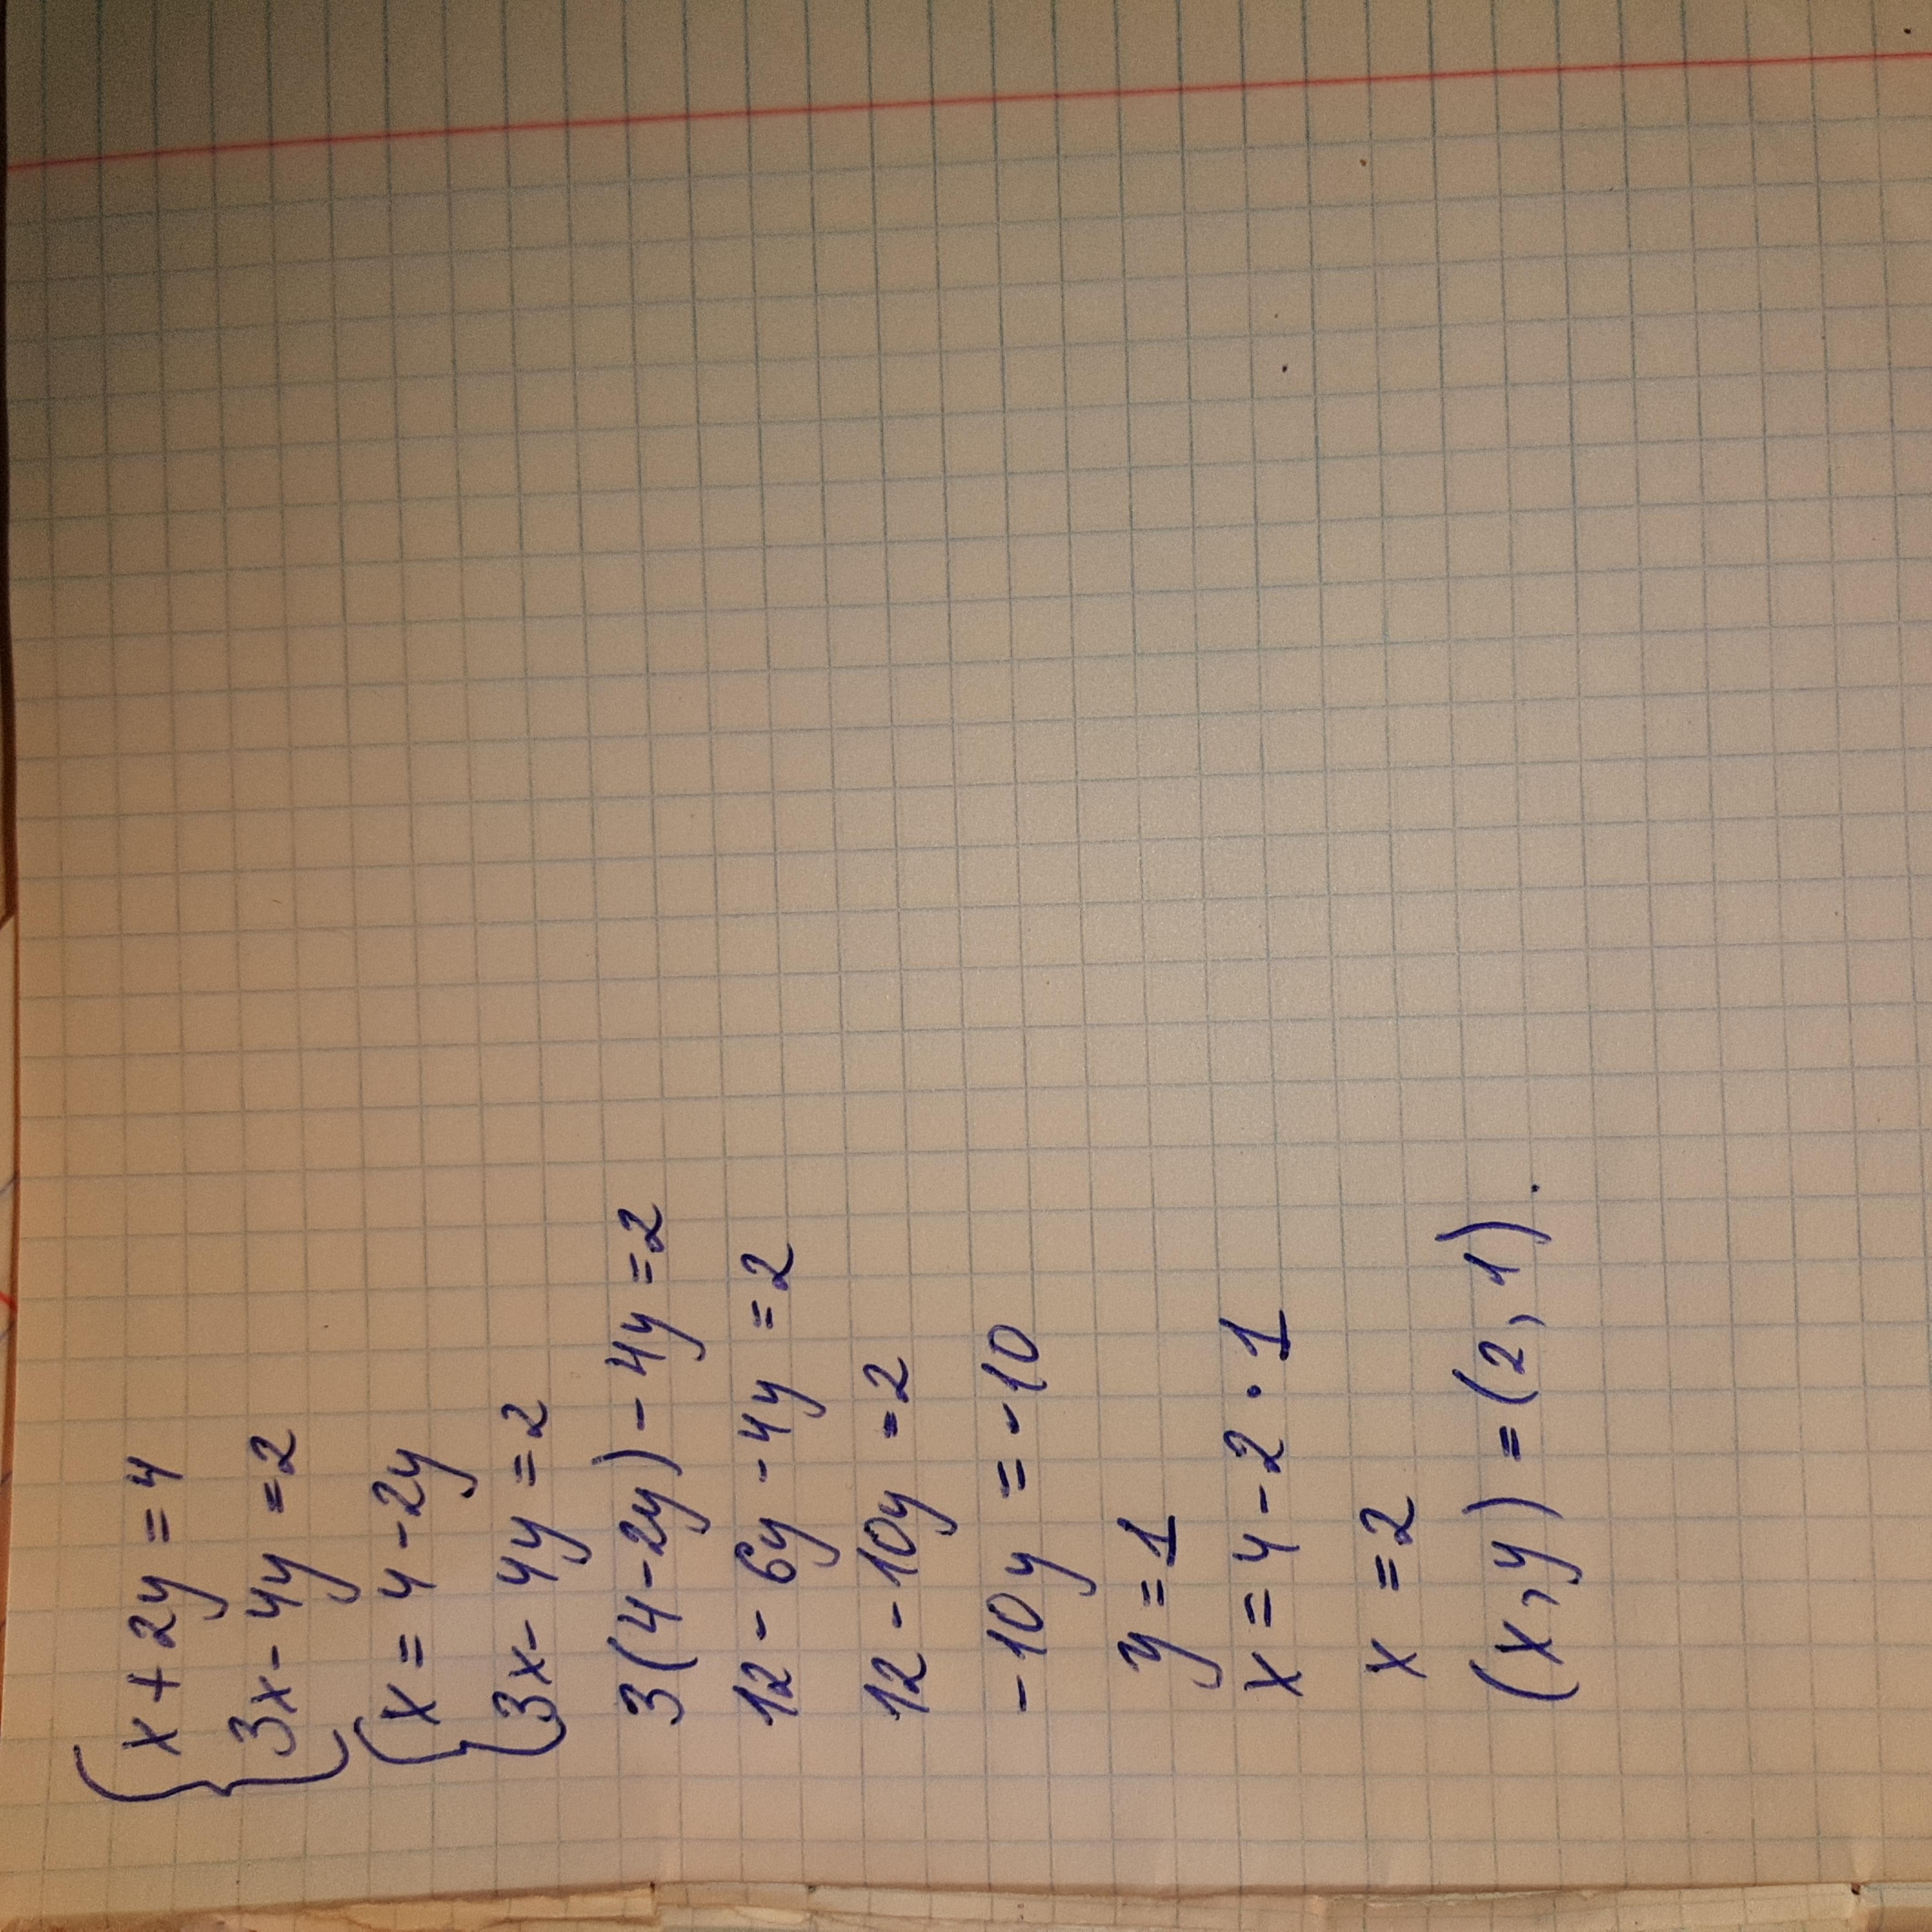 x + 2y = 4
3x - 4y = 2
x = 4 - 2y
3x - 4y = 2
3(4 - 2y) - 4y = 2
12 - 6y - 4y = 2
12 - 10y = 2
-10y = -10
y = 1
x = 4 - 2 · 1
x = 2
(x, y) = (2, 1).